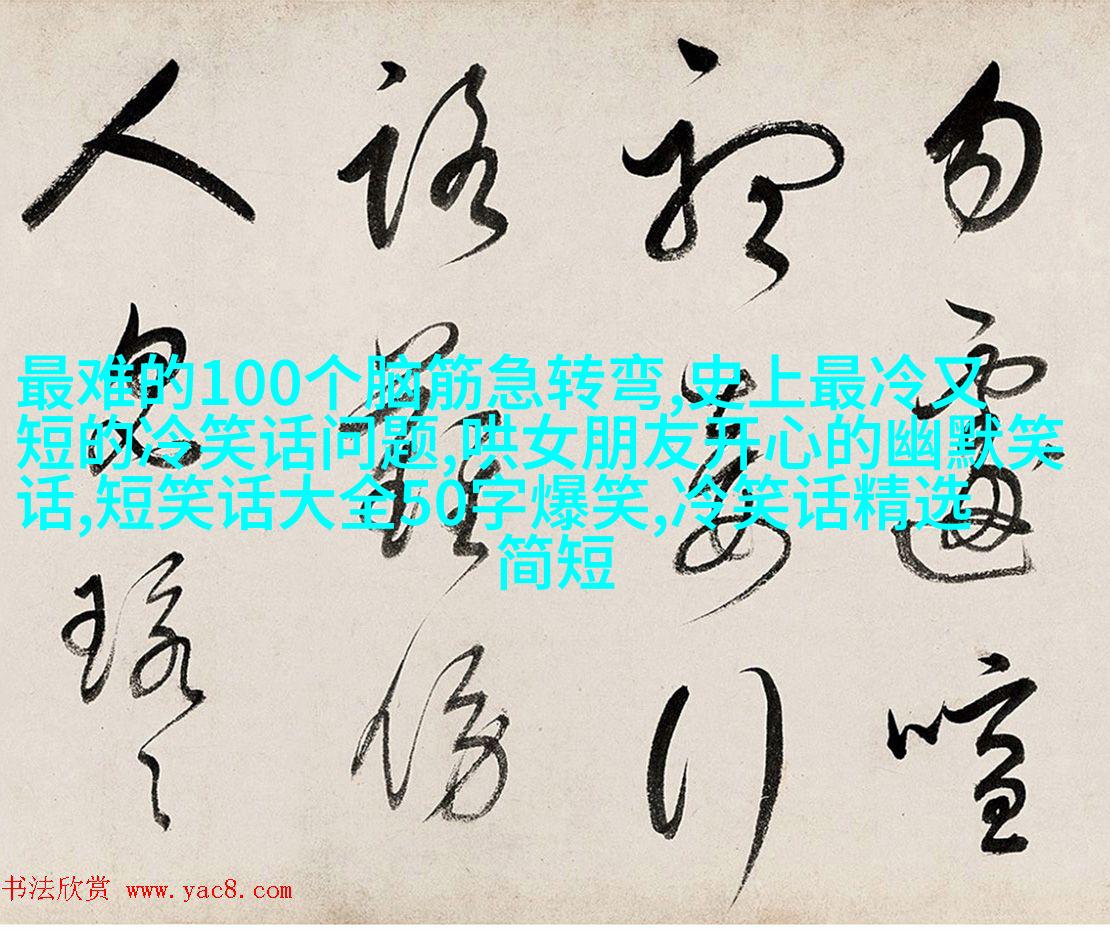 勿遽喧
行
路難傍
人
最难的100个脑筋急转弯,史上最冷又
短的冷笑话问题,哄女朋友开心的幽默笑
话,短笑话大全50字爆笑,冷笑话精选
简短
书法欣赏 www.yac8.com